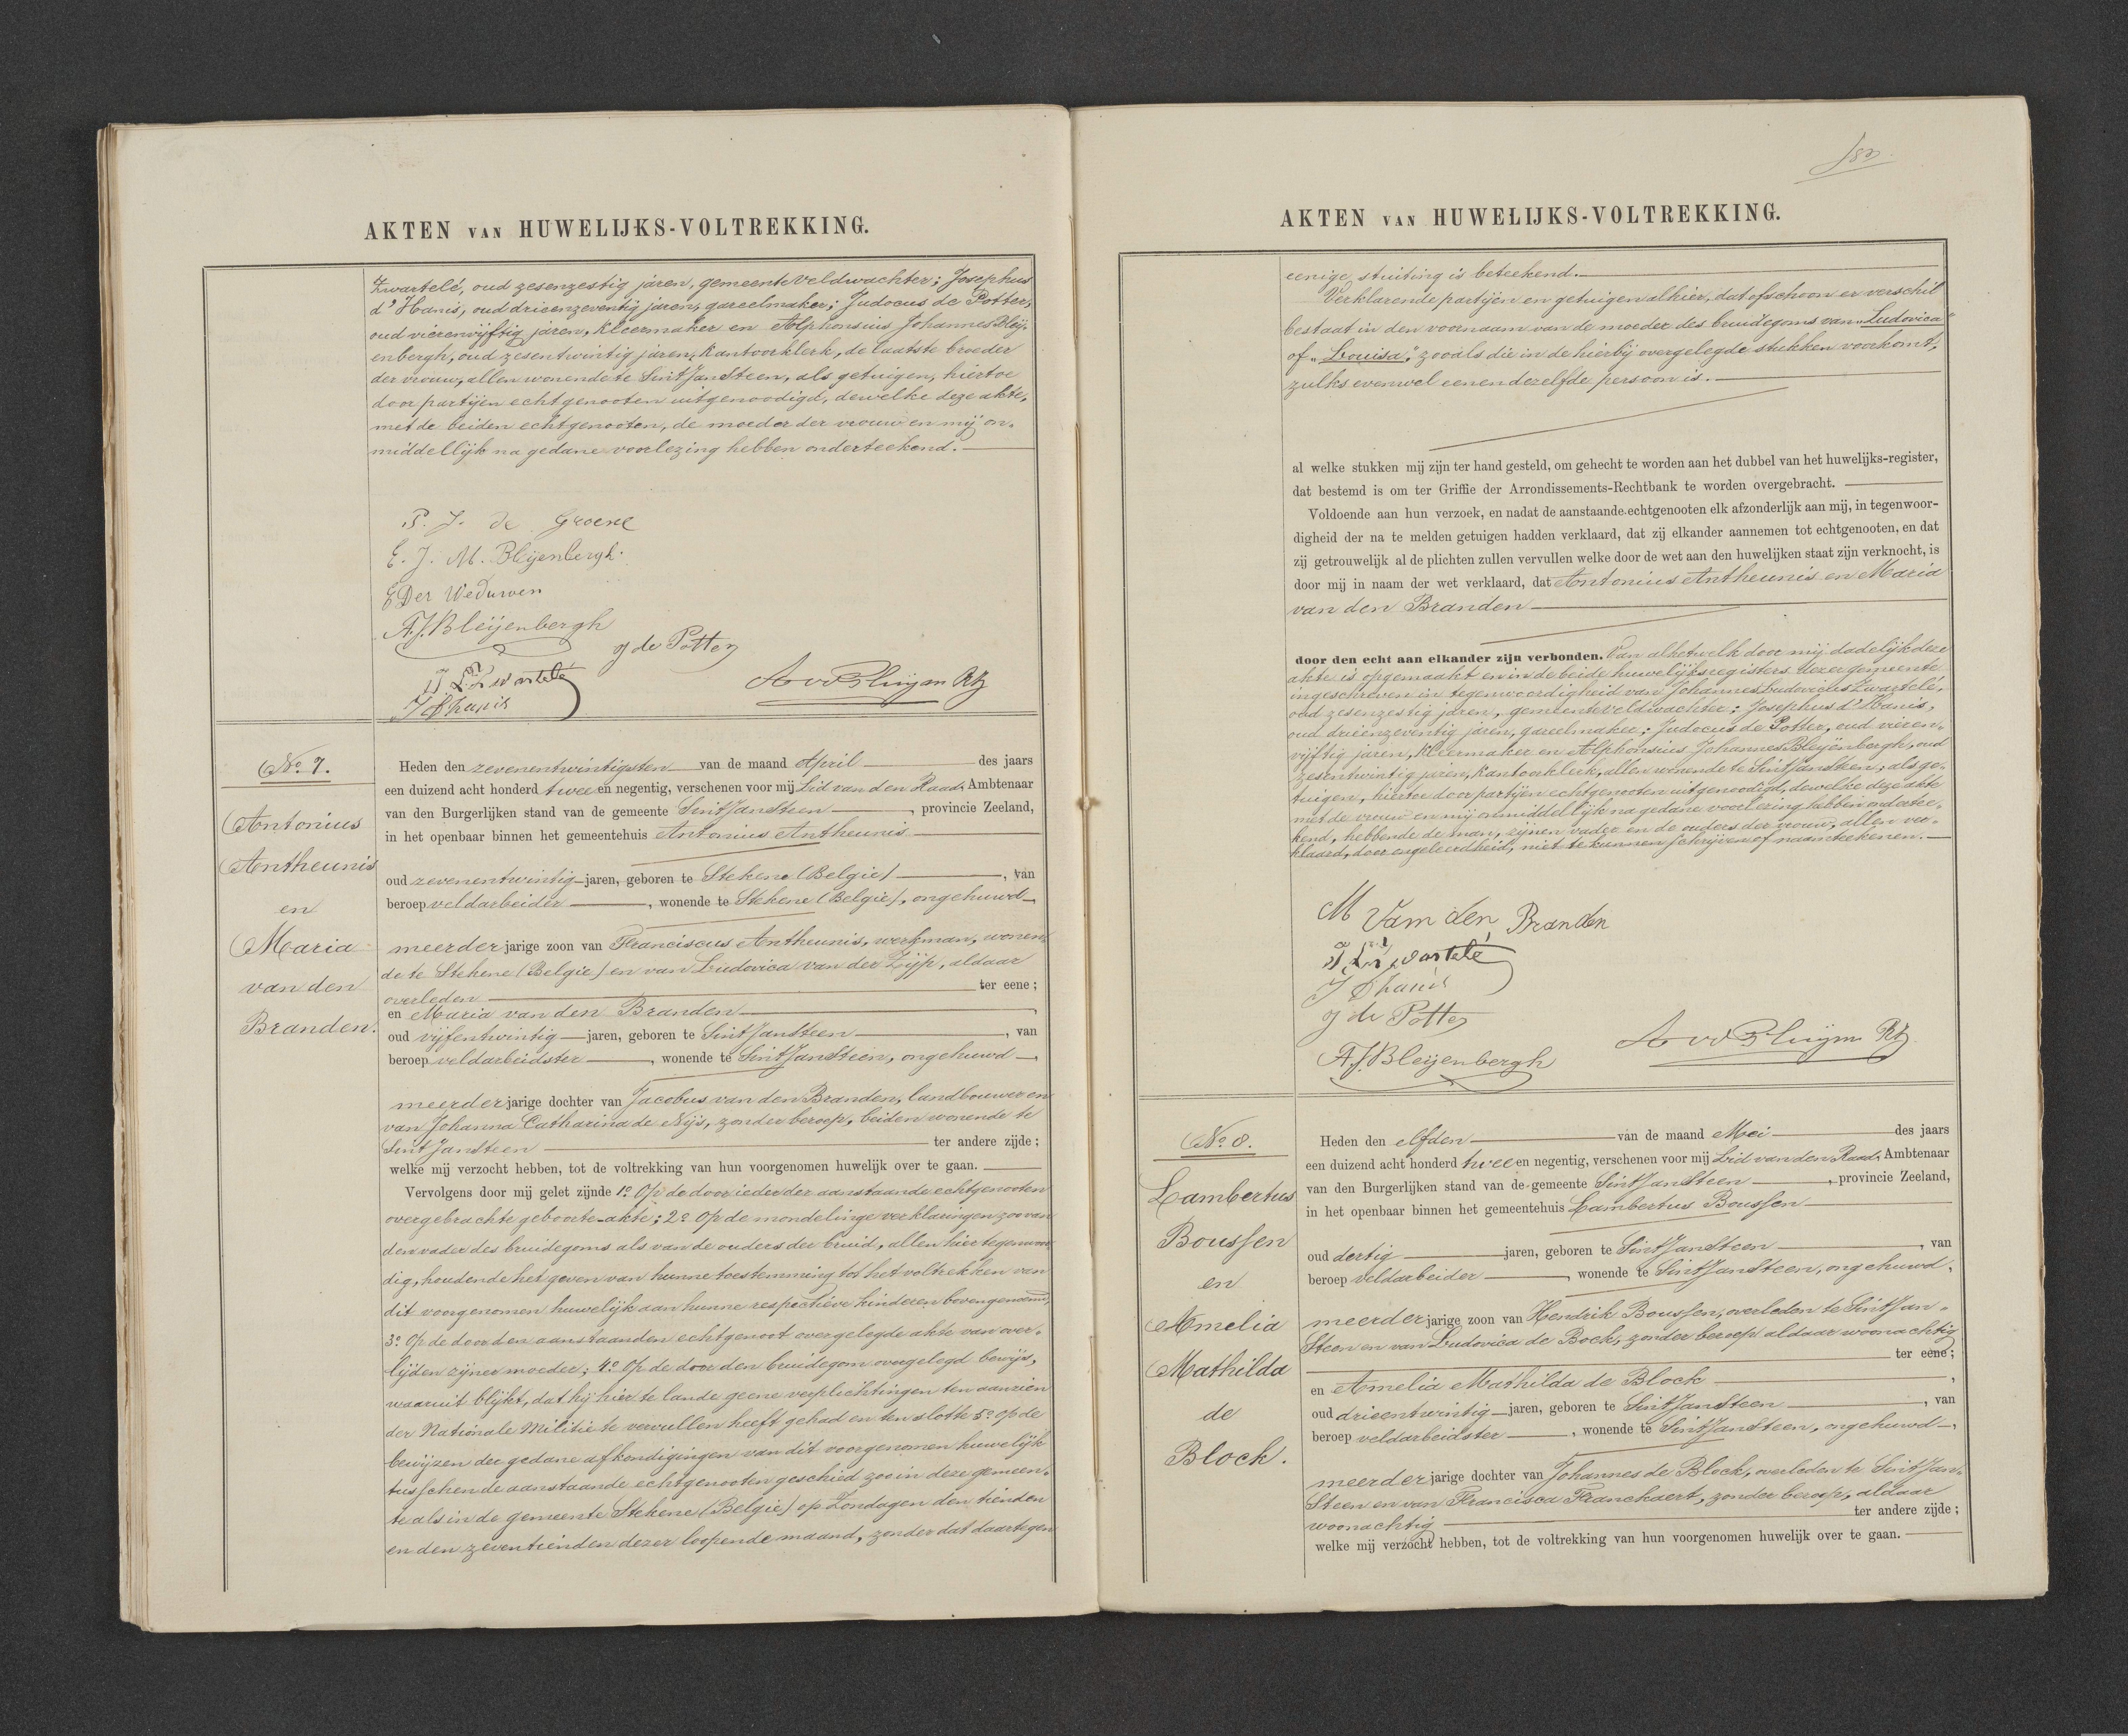 AKTEN VAN HUWELIJKS-VOLTREKKING.
Zwartelé, oud zesenzestig jaren, gemeente veldwachter; Josephus
d'Hanis, oud drieenzeventig jaren, gareelmaker; Judocus de Potter,
oud vierenvijftig jaren, kleermaker en Alphonsius Johannes Bleij-
enbergh, oud zesentwintig jaren, kantoorklerk, de laatste broeder
der vrouw, allen wonende te Sint Jansteen, als getuigen, hiertoe
door partijen echtgenooten uitgenoodigd, dewelke deze akte,
met de beiden echtgenooten, de moeder der vrouw en mij on-
middellijk na gedane voorlezing hebben onderteekend.
P. J. de Groene
E. J. M. Bleijenbergh.
E Der Weduwen
A.J. Bleijenbergh
J de Potter
J. L. Zwartelé
J Dhanis
No. 7.
Antonius
Antheunis
en
Maria
van den
Branden.
Heden den zevenentwintigsten van de maand April des jaars
een duizend acht honderd twee en negentig, verschenen voor mij Lid van den Raad, Ambtenaar
van den Burgerlijken stand van de gemeente Sint Jansteen, provincie Zeeland,
in het openbaar binnen het gemeentehuis Antonius Antheunis
oud zevenentwintig jaren, geboren te Stekene (Belgie), van
beroep veldarbeider, wonende te Stekene (Belgie), ongehuwd
meerderjarige zoon van Franciscus Antheunis, werkman, wonen-
de te Stekene (Belgie) en van Ludovica van der Zijp, aldaar
overleden ter eene;
en Maria van den Branden
oud vijfentwintig jaren, geboren te Sint Jansteen, van
beroep veldarbeidster, wonende te Sint Jansteen, ongehuwd
meerderjarige dochter van Jacobus van den Branden, landbouwer en
van Johanna Catharina de Nijs, zonder beroep, beiden wonende te
Sint Jansteen ter andere zijde;
welke mij verzocht hebben, tot de voltrekking van hun voorgenomen huwelijk over te gaan.
Vervolgens door mij gelet zijnde 1o. Op de door ieder der aanstaande echtgenooten
overgebrachte geboorte-akte; 2o. Op de mondelinge verklaringen zoo van
den vader des bruidegoms als van de ouders der bruid, allen hier tegenwoor-
dig, houdende het geven van hunne toestemming tot het voltrekken van
dit voorgenomen huwelijk aan hunne respectieve kinderen bovengenoemd;
3o. Op de door den aanstaanden echtgenoot overgelegde akte van over-
lijden zijner moeder; 4o. Op de door den bruidegom overgelegd bewijs,
waaruit blijkt, dat hij hier te lande geene verplichtingen ten aanzien
der Nationale Militie te vervullen heeft gehad en ten slotte 5o. Op de
bewijzen der gedane afkondigingen van dit voorgenomen huwelijk
tusschen de aanstaande echtgenooten geschied zoo in deze gemeen-
te als in de gemeente Stekene (Belgie) op Zondagen den tienden
en den zeventienden dezer loopende maand, zonder dat daartegen
AKTEN VAN HUWELIJKS-VOLTREKKING.
eenige stuiting is beteekend.
Verklarende partijen en getuigen alhier, dat ofschoon er verschil
bestaat in den voornaam van de moeder des bruidegoms van "Ludovica"
of "Louisa," zooals die in de hierbij overgelegde stukken voorkomt,
zulks evenwel een en dezelfde persoon is.
al welke stukken mij zijn ter hand gesteld, om gehecht te worden aan het dubbel van het huwelijks-register,
dat bestemd is om ter Griffie der Arrondissements-Rechtbank te worden overgebracht.
Voldoende aan hun verzoek, en nadat de aanstaande echtgenooten elk afzonderlijk aan mij, in tegenwoor-
digheid der na te melden getuigen hadden verklaard, dat zij elkander aannemen tot echtgenooten, en dat
zij getrouwelijk al de plichten zullen vervullen welke door de wet aan den huwelijken staat zijn verknocht, is
door mij in naam der wet verklaard, dat Antonius Antheunis en Maria
van den Branden
door den echt aan elkander zijn verbonden. Van al hetwelk door mij dadelijk deze
akte is opgemaakt en in de beide huwelijksregisters dezer gemeente
ingeschreven in tegenwoordigheid van Johannes Ludovicus Zwartelé,
oud zesenzestig jaren, gemeente veldwachter; Josephus d'Hanis,
oud drieenzeventig jaren, gareelmaker; Judocus de Potter, oud vieren-
vijftig jaren, kleermaker en Alphonsius Johannes Bleijenbergh, oud
zesentwintig jaren, kantoorklerk, allen wonende te Sint Jansteen, als ge-
tuigen, hiertoe door partijen echtgenooten uitgenoodigd, dewelke deze akte
met de vrouw en mij onmiddellijk na gedane voorlezing hebben ondertee-
kend, hebbende de man, zijnen vader en de ouders der vrouw, allen ver-
klaard, door ongeleerdheid, niet te kunnen schrijven of naamteekenen.
M Van den Branden
J. L. Zwartelé
J Dhanis
J de Potter
A.J. Bleijenbergh
No. 8.
Lambertus
Boussen
en
Amelia
Mathilda
de
Block.
Heden den elfden van de maand Mei des jaars
een duizend acht honderd twee en negentig, verschenen voor mij Lid van den Raad, Ambtenaar
van den Burgerlijken stand van de gemeente Sint Jansteen, provincie Zeeland,
in het openbaar binnen het gemeentehuis Lambertus Boussen
oud dertig jaren, geboren te Sint Jansteen, van
beroep veldarbeider, wonende te Sint Jansteen, ongehuwd,
meerderjarige zoon van Hendrik Boussen, overleden te Sint Jan-
Steen en van Ludovica de Bock, zonder beroep aldaar woonachtig
ter eene;
en Amelia Mathilda de Block,
oud drieentwintig jaren, geboren te Sint Jansteen, van
beroep veldarbeidster, wonende te Sint Jansteen, ongehuwd,
meerderjarige dochter van Johannes de Block, overleden te Sint Jan-
Steen en van Francisca Franckaert, zonder beroep, aldaar
woonachtig ter andere zijde;
welke mij verzocht hebben, tot de voltrekking van hun voorgenomen huwelijk over te gaan.